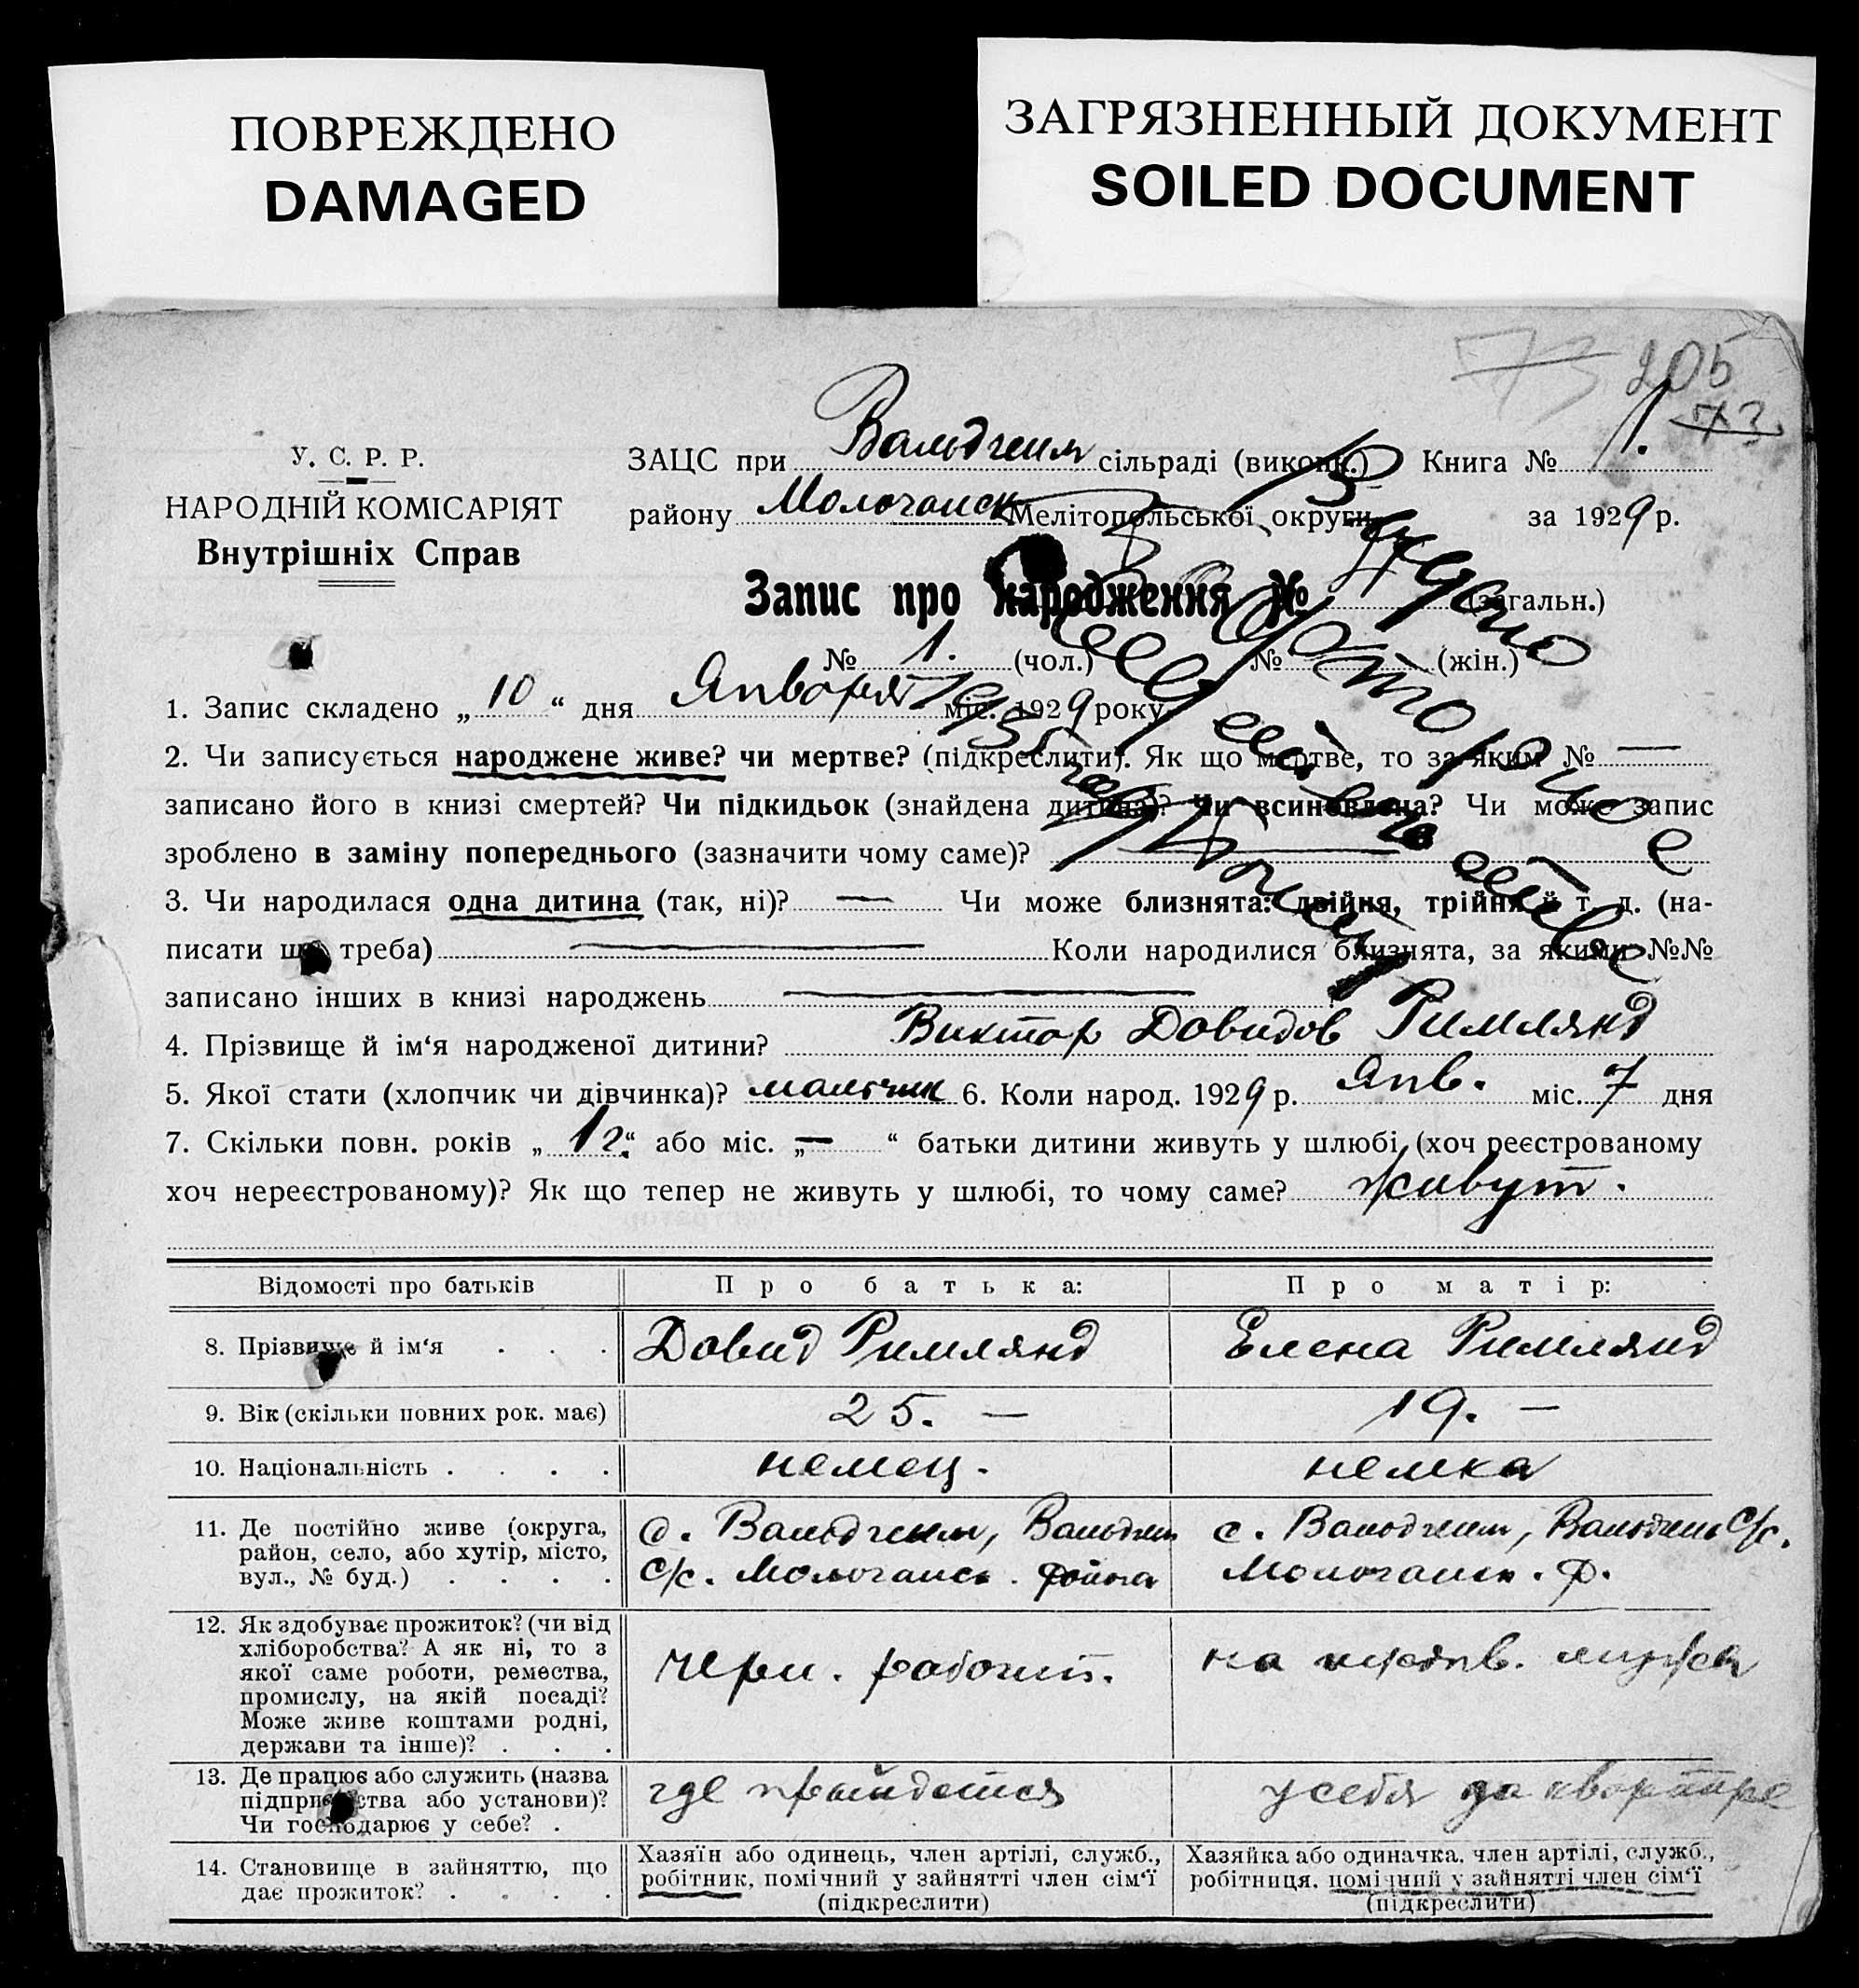 ПОВРЕЖДЕНО
DAMAGED
ЗАГРЯЗНЕННЫЙ ДОКУМЕНТ
SOILED DOCUMENT
73 205
73
У. С. Р. Р.
НАРОДНІЙ КОМІСАРІЯТ
Внутрішніх Справ
ЗАЦС при Вальдгейм сільраді (викон.) Книга № 1.
району Молочанск Мелітопольської округи за 1929 р.
Запис про народження № (загальн.)
№ 1. (чол.) № (жін.)
Выдано
вторичное
свид
1. Запис складено „ 10 “ дня Января міс. 1929 року.
2. Чи записується народжене живе? чи мертве? (підкреслити). Як що мертве, то за яким № —
записано його в книзі смертей? Чи підкидьок (знайдена дитина)? Чи всиновлена? Чи може запис
зроблено в заміну попереднього (зазначити чому саме)?
3. Чи народилася одна дитина (так, ні)? — Чи може близнята: двійня, трійня й т. д. (на-
писати що треба) — Коли народилися близнята, за якими №№
записано інших в книзі народжень —
4. Прізвище й ім‘я народженої дитини? Виктор Давидов Римлянд
5. Якої стати (хлопчик чи дівчинка)? мальчик 6. Коли народ. 1929 р. Янв. міс. 7 дня
7. Скільки повн. років „ 1 г. “ або міс. „ — “ батьки дитини живуть у шлюбі (хоч реєстрованому
хоч нереєстрованому)? Як що тепер не живуть у шлюбі, то чому саме? живут.
Відомості про батьків Про батька: Про матір:
8. Прізвище й ім‘я . . . Давид Римлянд Елена Римлянд
9. Вік (скільки повних рок. має) 25. — 19. —
10. Національність . . . . немец. немка
11. Де постійно живе (округа,
район, село, або хутір, місто,
вул., № буд.) . . . .
с. Вальдгейм, Вальдгейм
с/с. Молочанск. района
с. Вальдгейм, Вальдгейм с/с.
Молочанск. р.
12. Як здобуває прожиток? (чи від
хліборобства? А як ні, то з
якої саме роботи, ремества,
промислу, на якій посаді?
Може живе коштами родні,
держави та інше)? . . .
черн. работ.
на иждив. мужа
13. Де працює або служить (назва
підприємства або установи)?
Чи господарює у себе? .
где прийдется
у себя на квартире
14. Становище в зайняттю, що
дає прожиток? . . . .
Хазяїн або одинець, член артілі, служб.,
робітник, помічний у зайнятті член сім‘ї
(підкреслити)
Хазяйка або одиначка, член артілі, служб.,
робітниця, помічний у зайнятті член сім‘ї
(підкреслити)